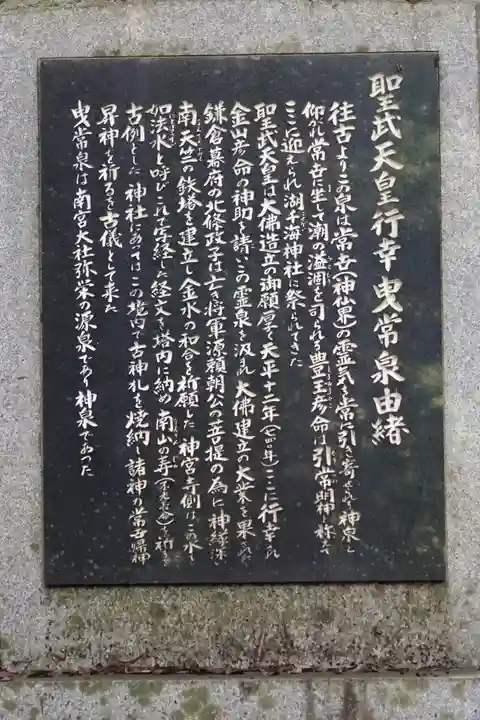 聖武天皇行幸曳常泉由緒
往古よりこの泉は常世(神仙界)の霊気を常に引き寄せられ神泉と
仰がれ常世に生して潮の溢涸を司られる豊玉彦命は引常明神と称え
ここに迎えられ湖千海神社に祭られてきた
聖武天皇は大佛造立の御願厚く天平十二年(七四〇年)ここに行幸され
金山彦命の神助を請いこの霊泉を汲まれ大佛建立の大業を果された
鎌倉幕府の北條政子は亡き将軍源頼朝公の菩提の為に神縁深し
南天竺の鉄塔を建立し金水の和合を祈願した神宮寺側はこの水を
如法水と呼びこれで写経した経文を塔内に納め南山の寿(不老長命)を祈る
古例とした神社にあってはこの境内で古神札を焼納し諸神の常世帰神
昇神を祈るを古儀として来た
曳常泉は南宮大社弥栄の源泉であり神泉であった